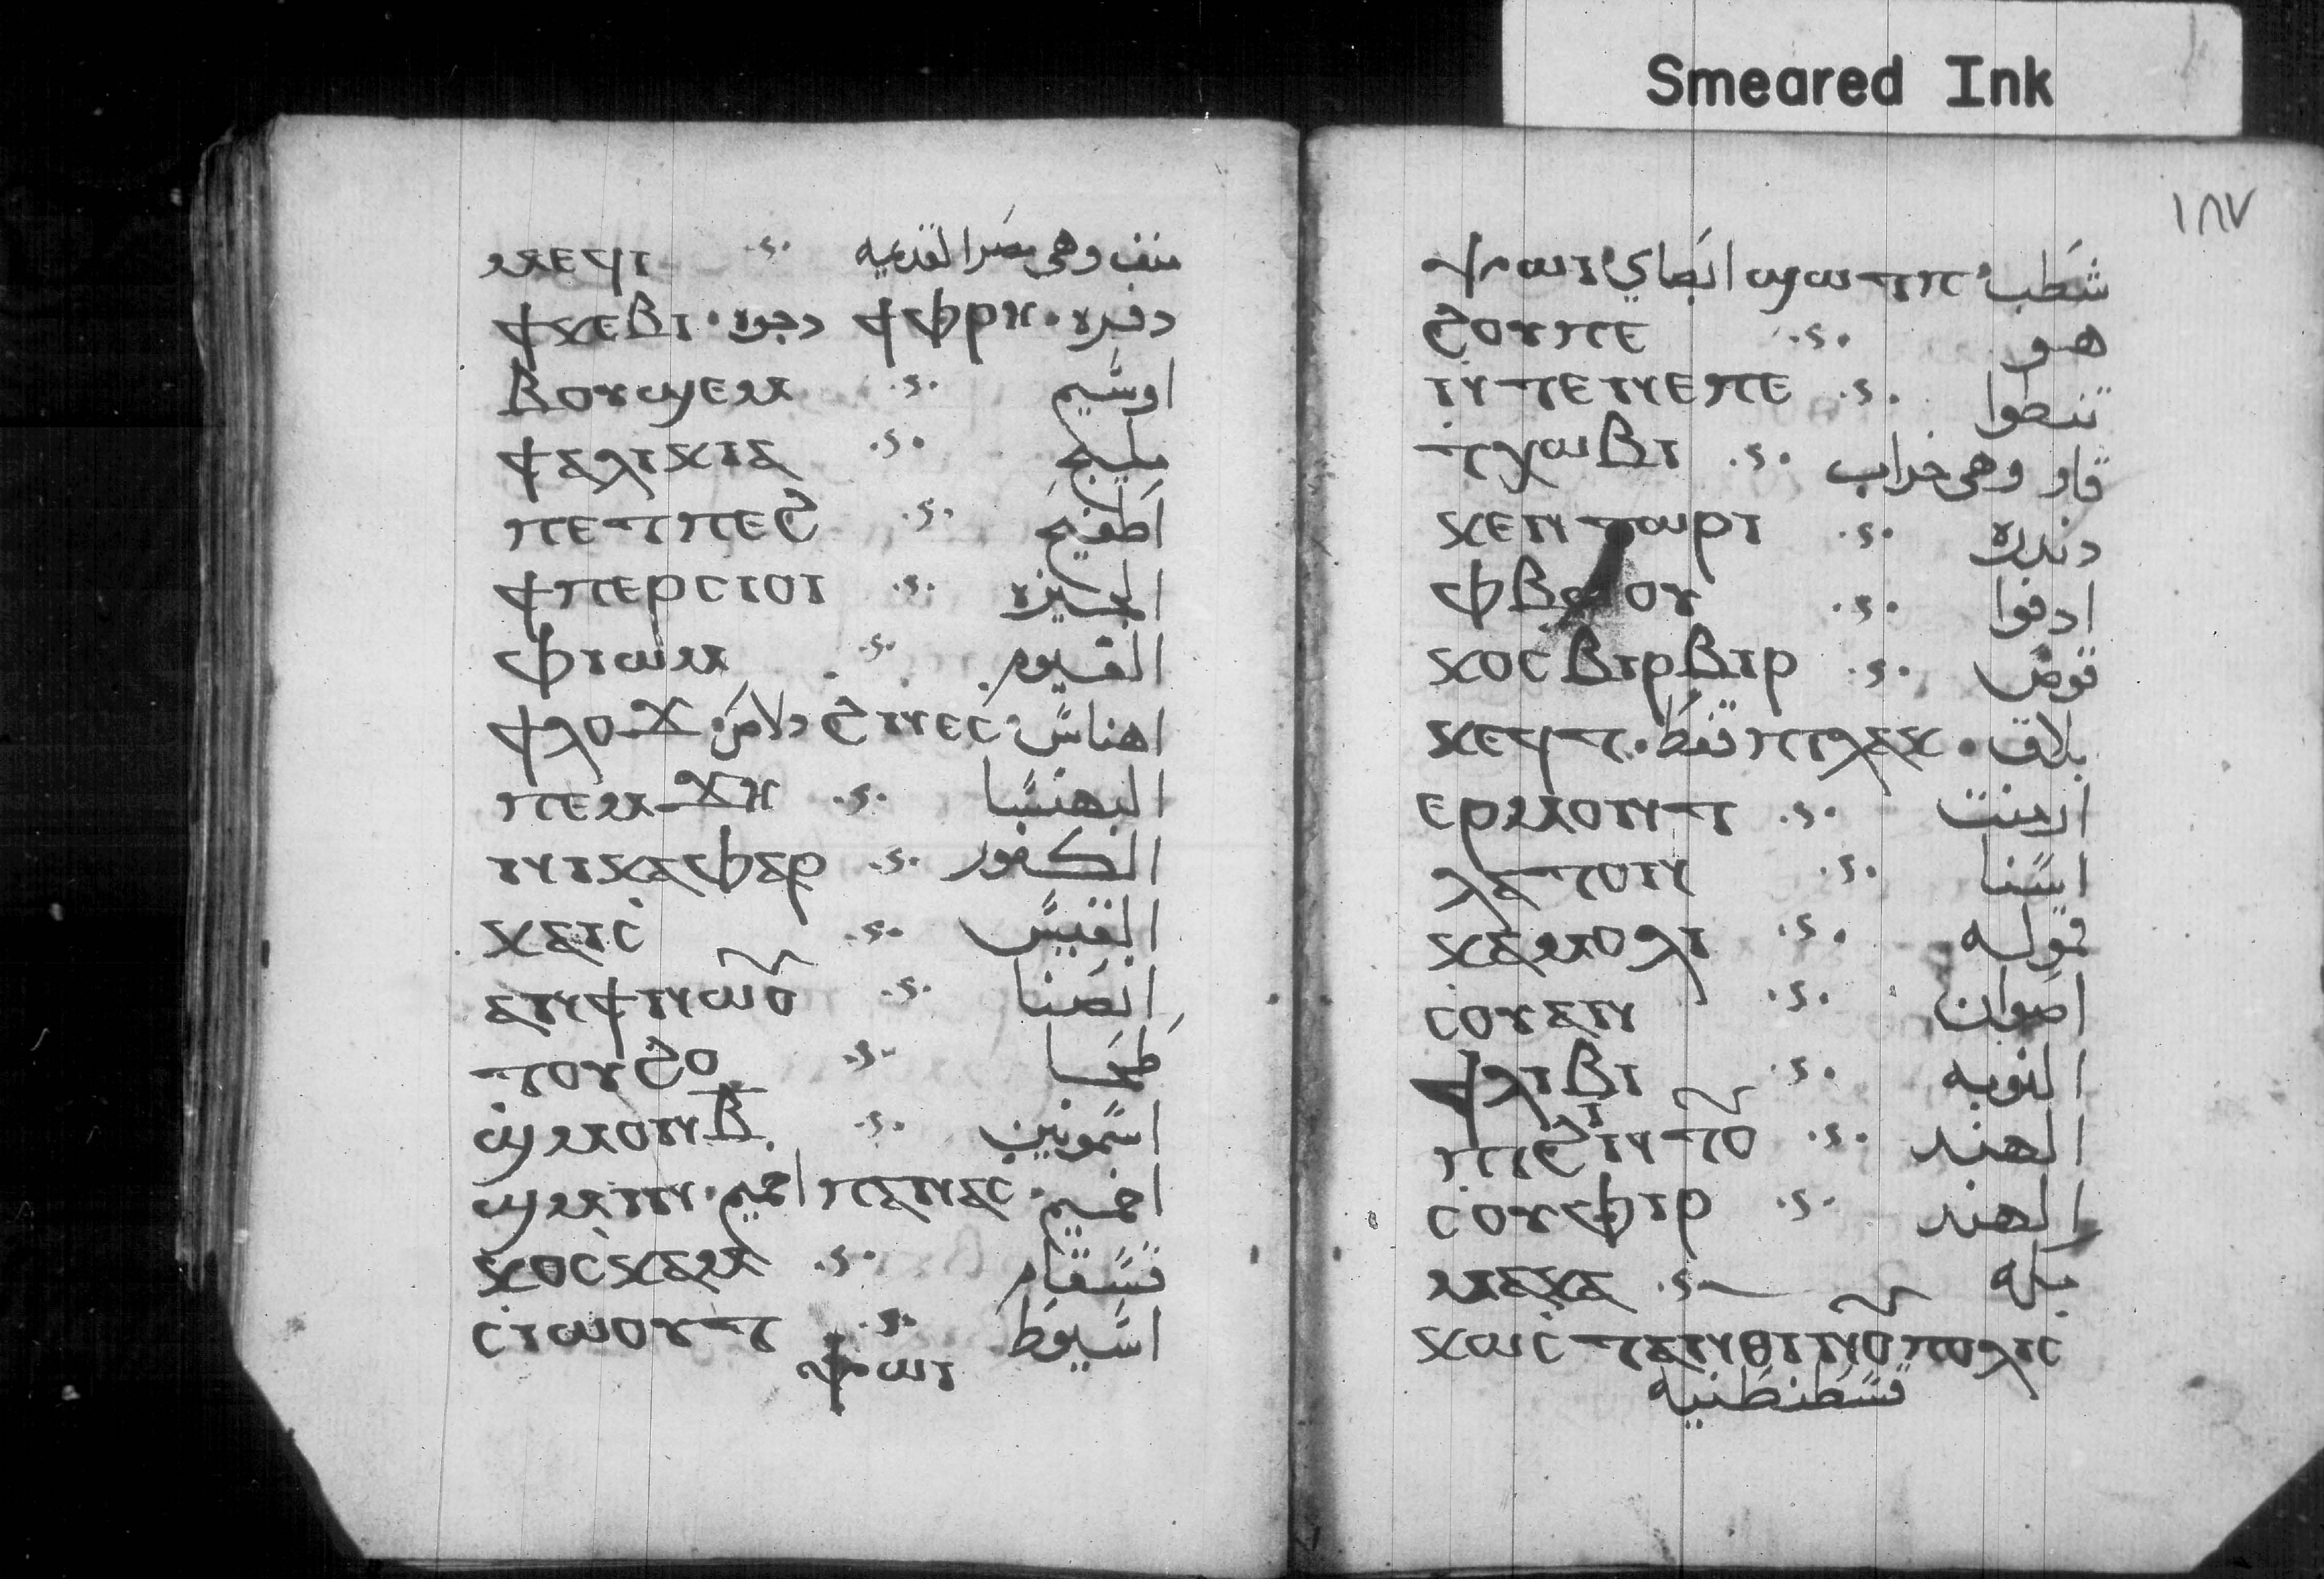 Smeared Ink
١٨٧
ⲙⲉϥⲓ منف وهى مصر القديمه
ϯϫⲉⲃⲓ دجوه ϯⲫⲣⲏ دفره
ⲃⲟⲩϣⲉⲙ اوشيم
ϯⲁⲗⲓϫⲓⲁ مليج
ⲡⲉⲧⲡⲉϩ اطفيح
ϯⲡⲉⲣⲥⲓⲟⲓ الجيزه
ⲫⲓⲱⲙ الفيوم
ϯⲗⲟϫ دلاص ϩⲛⲉⲥ اهناس
ⲡⲉⲙϫⲏ البهنسا
ⲛⲓⲕⲁⲫⲁⲣ الكفور
ⲕⲁⲓⲥ القيس
ⲁⲛϯⲛⲱⲟ انصنا
ⲧⲟⲩϩⲟ طحا
ϣⲙⲟⲩⲛⲃ اشمونين
ϣⲙⲓⲛ اخيم ⲡⲁⲛⲁⲥ اخميم
ⲕⲟⲥⲕⲁⲙ قسقام
ⲥⲓⲱⲟⲩⲧ اسيوط
ⲯⲱⲓ
ⲯⲱⲓ ابصاي ϣⲱⲧⲡ شطب
ϩⲟⲩⲡⲉ هو
ⲛⲓⲧⲉⲛⲉⲡⲉ
ⲧⲕⲱⲃⲓ قاو وهى خراب
ⲕⲉⲛⲧⲱⲣⲓ دندره
ادفوا
ⲕⲟⲥⲃⲓⲣⲃⲓⲣ قوص
ⲕⲉϥⲧ قفط ⲡⲓⲗⲁⲕ بلاق
ⲉⲣⲙⲟⲛⲧ ارمنت
ⲗⲁⲧⲟⲛ اسنا
ⲕⲁⲙⲟⲗⲓ قموله
ⲥⲟⲩⲁⲛ اصوان
ϯⲗⲓⲃⲓ النوبه
ⲡⲓϩⲓⲛⲧⲟ الهند
ⲥⲟⲩⲫⲓⲣ الهند
ⲙⲁⲕⲁ مكه
ⲕⲱⲥⲧⲁⲛⲑⲓⲛⲟⲩⲡⲟⲗⲓⲥ
قسطنطنيه